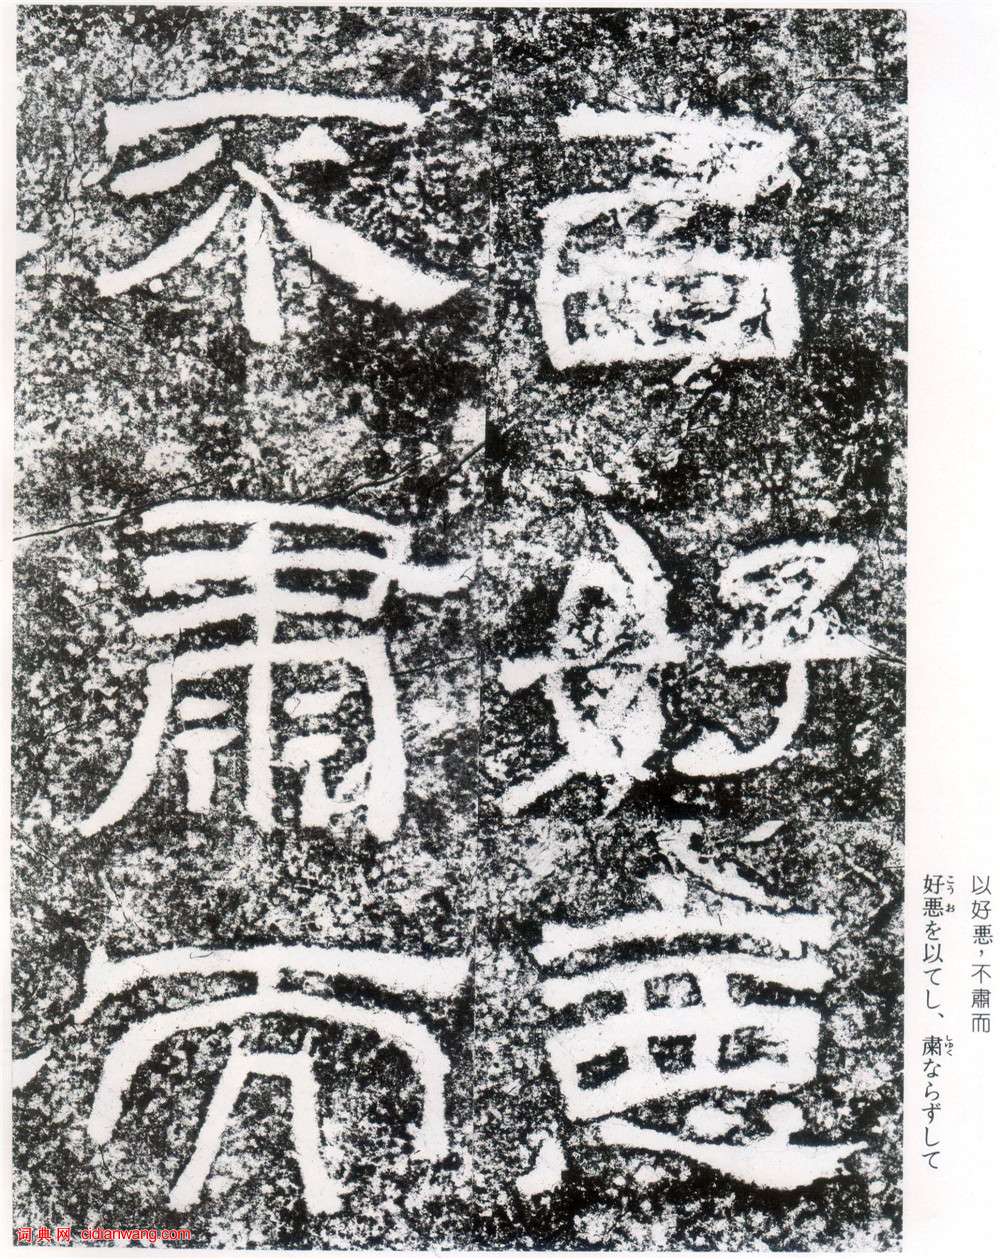 以好惡
不肅而
以好悪，不肅而
好悪を以てし、粛ならずして
こう お しゅく
词典网 cidianwang.com